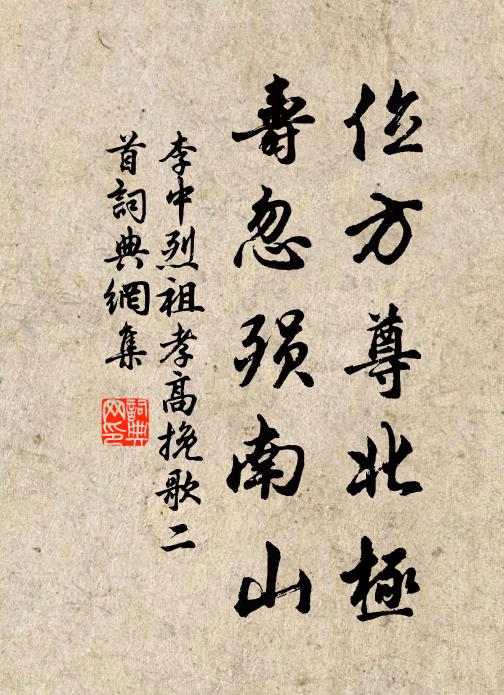 位方尊北極
壽忽殞南山
李中烈祖孝高挽歌二
首詞典網集
詞典
网印